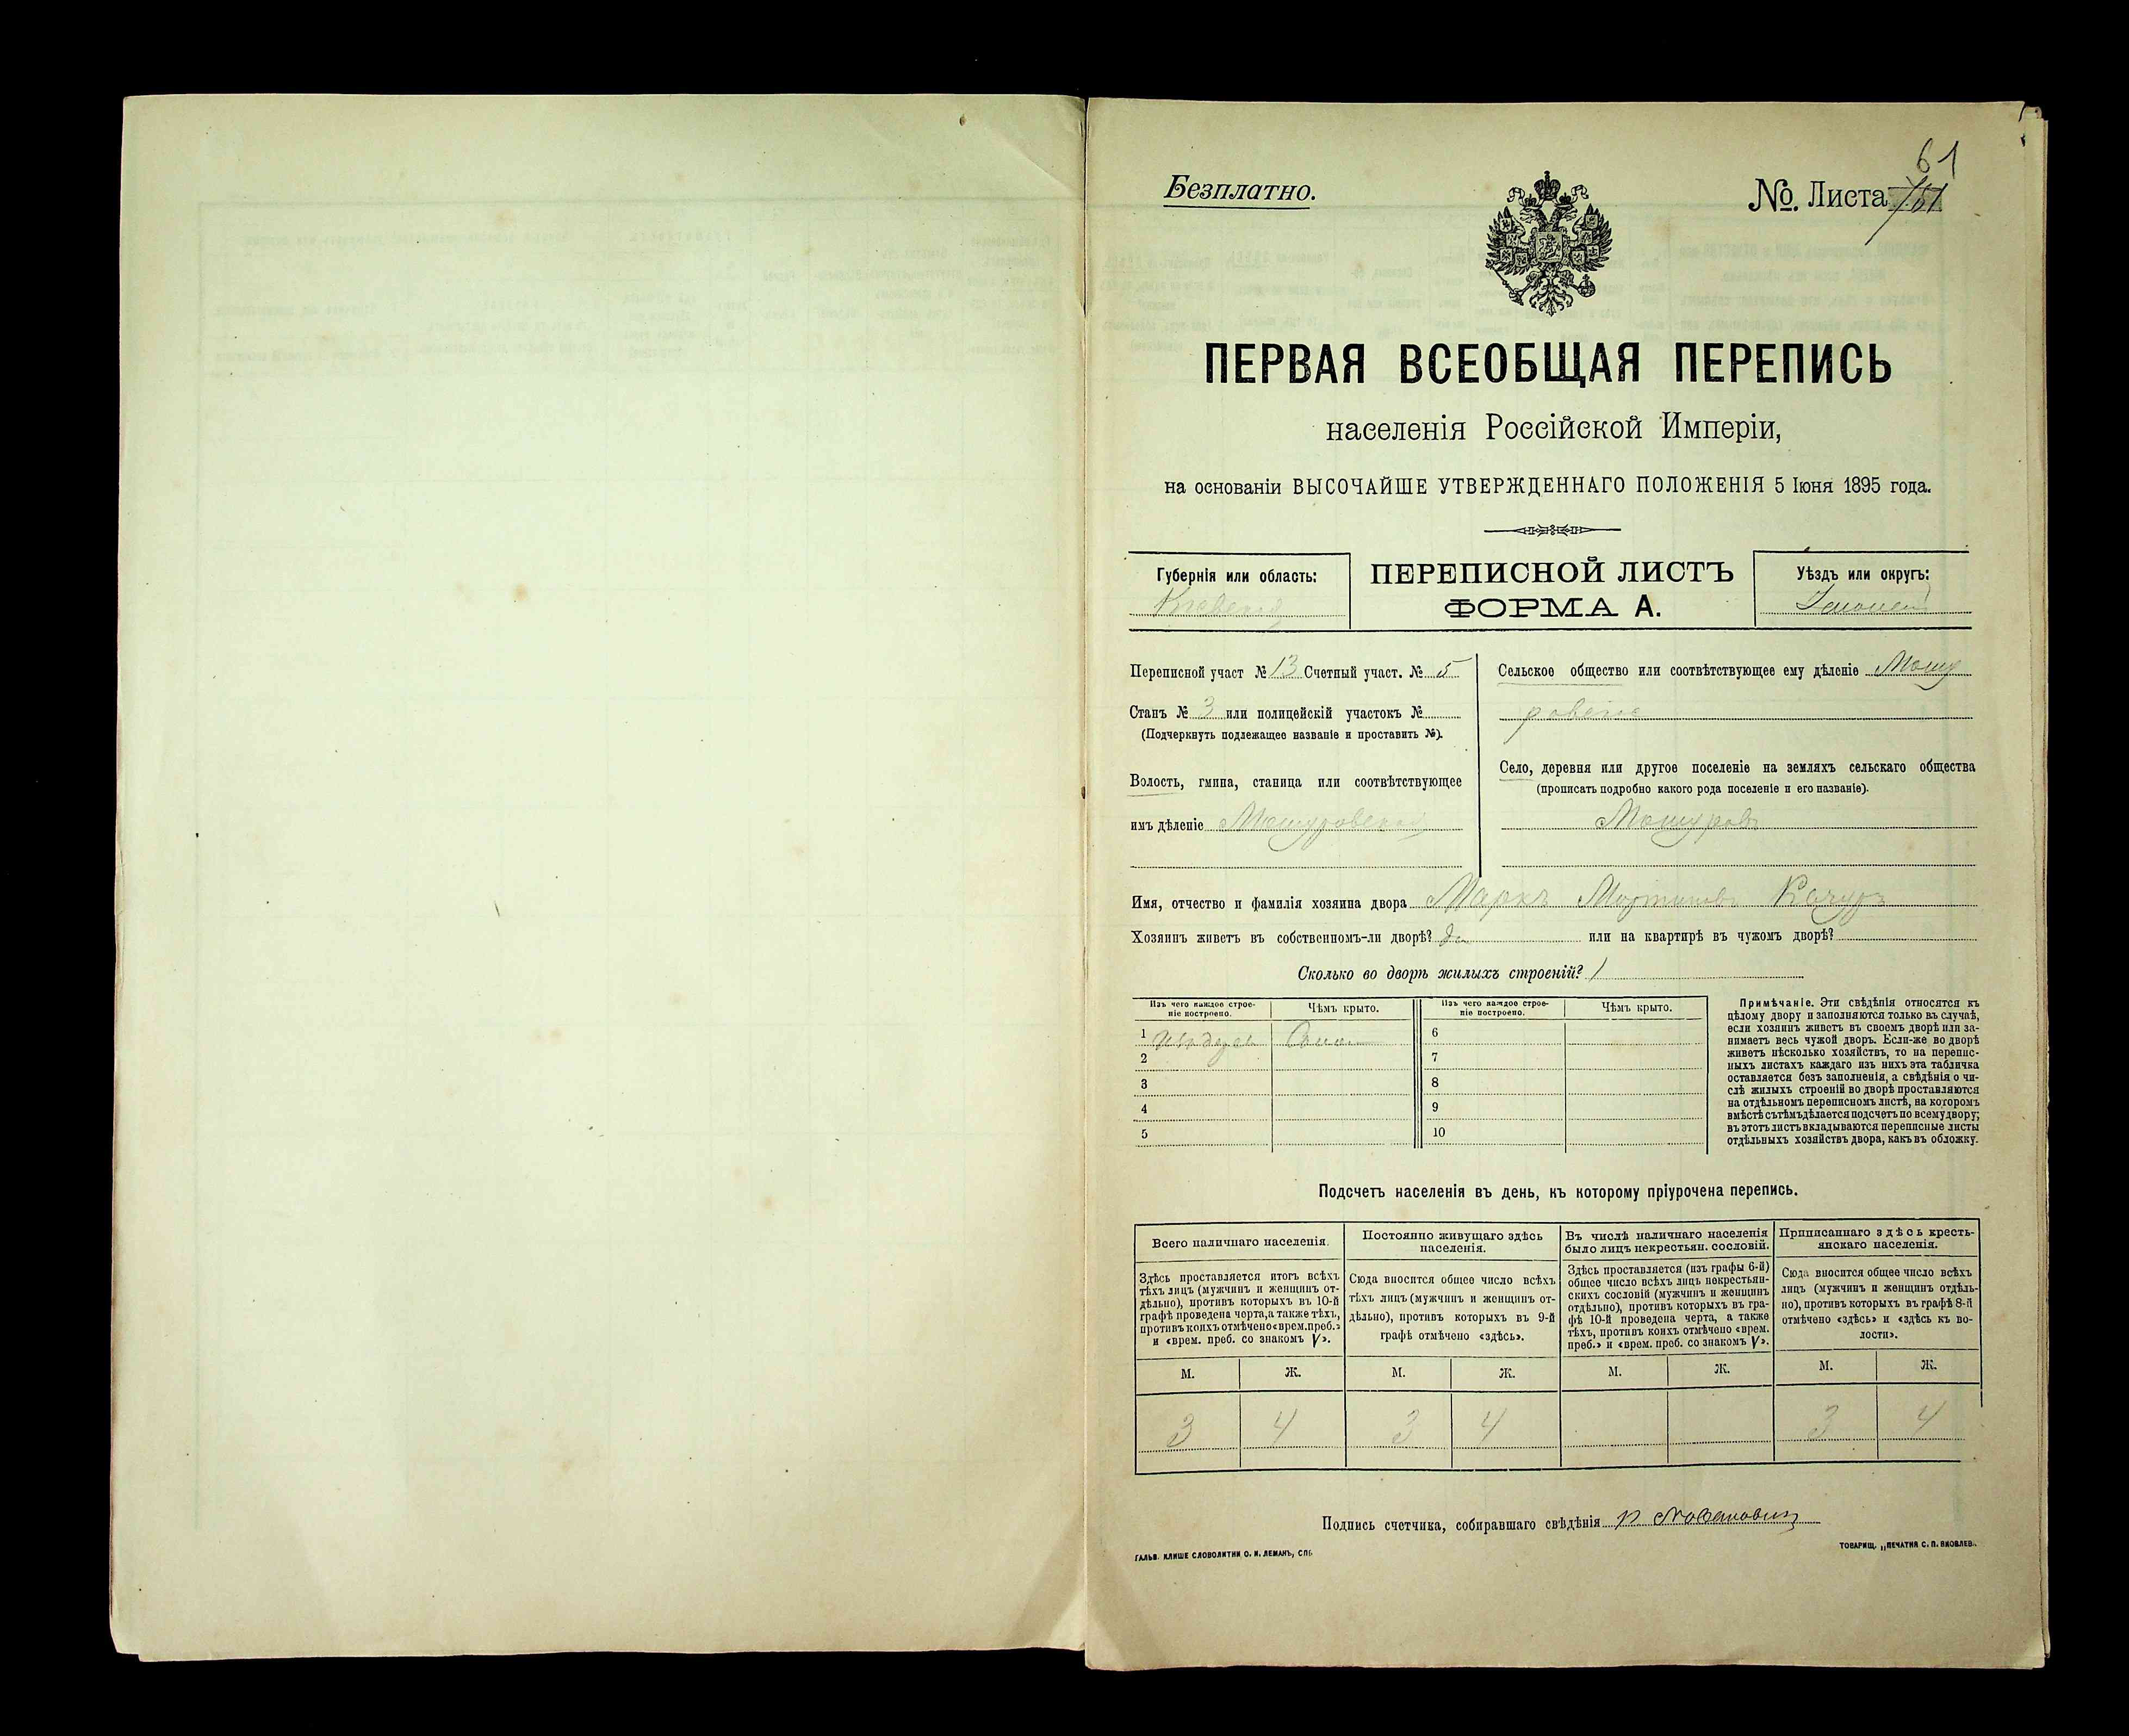 61
Безплатно.
№ Листа
ПЕРВАЯ ВСЕОБЩАЯ ПЕРЕПИСЬ
населенія Россійской Имперіи,
на основаніи ВЫСОЧАЙШЕ УТВЕРЖДЕННАГО ПОЛОЖЕНІЯ 5 Іюня 1895 года.
Губернія или область:
Кіевская
ПЕРЕПИСНОЙ ЛИСТЪ
ФОРМА А.
Уѣздъ или округъ:
Переписной участ № 13 Счетный участ. № 5
Станъ № 3 или полицейскій участокъ №
(Подчеркнуть подлежащее названіе и проставить №).
Волость, гмина, станица или соотвѣтствующее
имъ дѣленіе Машуровская
Сельское общество или соотвѣтствующее ему дѣленіе Машу
ровское
Село, деревня или другое поселеніе на земляхъ сельскаго общества
(прописать подробно какого рода поселеніе и его названіе).
Машуровъ
Имя, отчество и фамилія хозяина двора Маркъ Мартиновъ Качуръ
Хозяинъ живетъ въ собственномъ-ли дворѣ? да или на квартирѣ въ чужомъ дворѣ?
Сколько во дворѣ жилыхъ строеній? 1
Изъ чего каждое строе-
ніе построено.
Чѣмъ крыто.
Изъ чего каждое строе-
ніе построено.
Чѣмъ крыто.
1 Изъ дерев Солом
2
3
4
5
6
7
8
9
10
Примѣчаніе. Эти свѣдѣнія относятся къ
цѣлому двору и заполняются только въ случаѣ,
если хозяинъ живетъ въ своемъ дворѣ или за-
нимаетъ весь чужой дворъ. Если-же во дворѣ
живетъ нѣсколько хозяйствъ, то на перепис-
ныхъ листахъ каждаго изъ нихъ эта табличка
оставляется безъ заполненія, а свѣдѣнія о чи-
слѣ жилыхъ строеній во дворѣ проставляются
на отдѣльномъ переписномъ листѣ, на которомъ
вмѣстѣ съ тѣмъ дѣлается подсчетъ по всему двору;
въ этотъ листъ вкладываются переписные листы
отдѣльныхъ хозяйствъ двора, какъ въ обложку.
Подсчетъ населенія въ день, къ которому пріурочена перепись.
Всего наличнаго населенія.
Здѣсь проставляется итогъ всѣхъ
тѣхъ лицъ (мужчинъ и женщинъ от-
дѣльно), противъ которыхъ въ 10-й
графѣ проведена черта, а также тѣхъ,
противъ коихъ отмѣчено «врем. преб.»
и «врем. преб. со знакомъ V».
Постоянно живущаго здѣсь
населенія.
Сюда вносится общее число всѣхъ
тѣхъ лицъ (мужчинъ и женщинъ от-
дѣльно), противъ которыхъ въ 9-й
графѣ отмѣчено «здѣсь».
Въ числѣ наличнаго населенія
было лицъ некрестьян. сословій.
Здѣсь проставляется (изъ графы 6-й)
общее число всѣхъ лицъ некрестьян-
скихъ сословій (мужчинъ и женщинъ
отдѣльно), противъ которыхъ въ гра-
фѣ 10-й проведена черта, а также
тѣхъ, противъ коихъ отмѣчено «врем.
преб.» и «врем. преб. со знакомъ V».
Приписаннаго здѣсь кресть-
янскаго населенія.
Сюда вносится общее число всѣхъ
лицъ (мужчинъ и женщинъ отдѣль-
но), противъ которыхъ въ графѣ 8-й
отмѣчено «здѣсь» и «здѣсь къ во-
лости».
М. Ж. М. Ж. М. Ж. М. Ж.
3 4 3 4 3 4
Подпись счетчика, собиравшаго свѣдѣнія
ГАЛЬВ. КЛИШЕ СЛОВОЛИТНИ О. И. ЛЕМАНЪ, СПБ.
ТОВАРИЩ. „ПЕЧАТНЯ С. П. ЯКОВЛЕВ“.